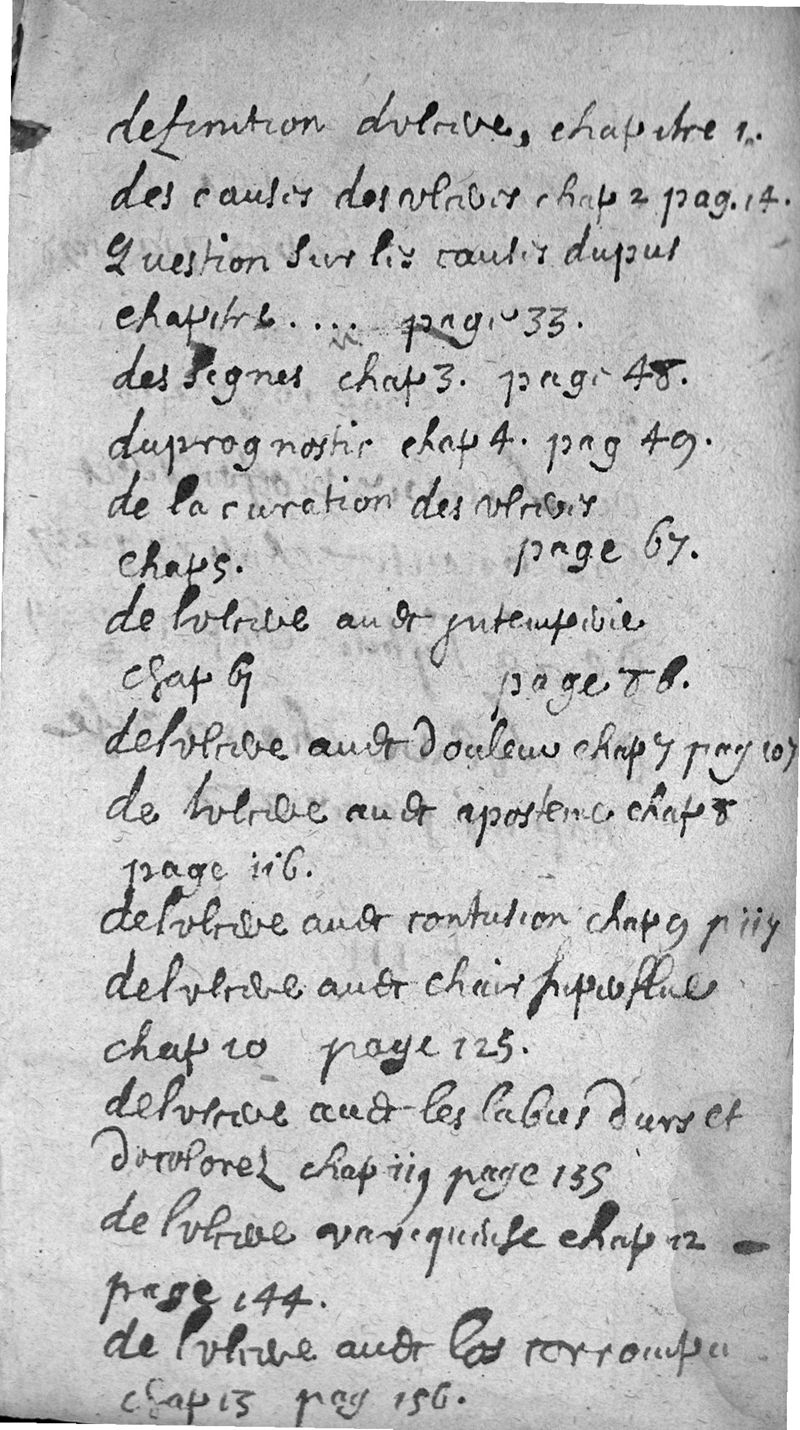 definition dulcere, chapitre 1.
des causes des ulceres chap 2 pag. 14.
Question sur les causes du pus
chapitre .... page 33.
des signes chap 3. page 48.
du prognostic chap 4. pag 49.
de la curation des ulceres
chap 5. page 67.
de lulcere avec jntemperie
chap 6 page 86.
de lulcere avec douleur chap 7 pag 107
de lulcere avec aposteme chap 8
page 116.
de lulcere avec contusion chap 9 p 117
de lulcere avec chair superflue
chap 10 page 125.
de lulcere avec les labies durs et
decolorez chap 11 page 135
de lulcere variqueuse chap 12
page 144.
de lulcere avec los corrompu
chap 13 pag 156.